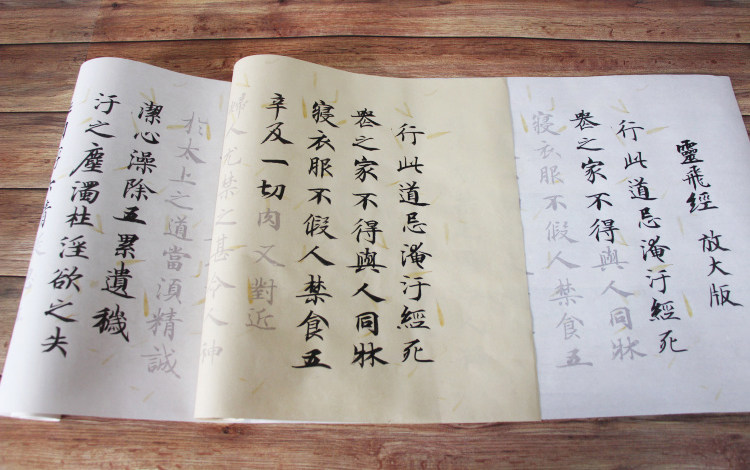 靈飛經 放大版
行此道忌淹汙經死
喪之家不得與人同牀
寢衣服不假人禁食五
行此道忌淹汙經死
喪之家不得與人同牀
寢衣服不假人禁食五
辛及一切肉又對近
婦人尤禁之甚令人神
於太上之道當須精誠
潔心澡除五累遺穢
汙之塵濁杜淫欲之失